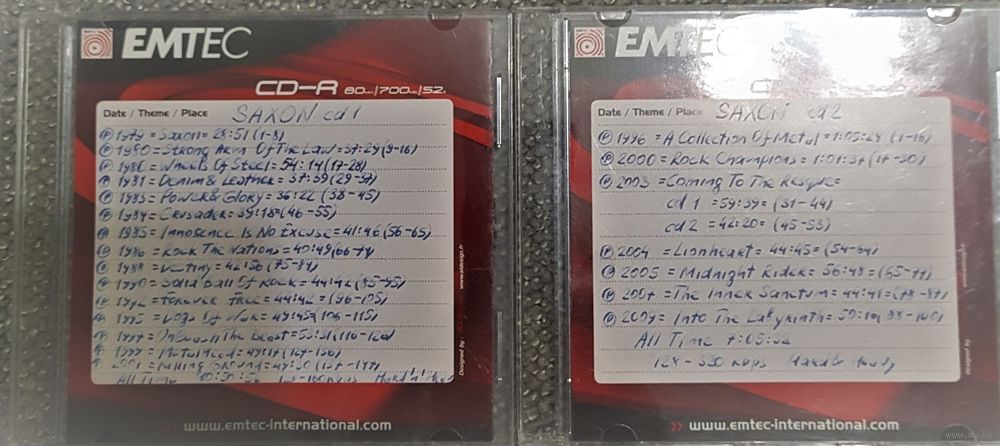 EMTEC
CD-R 80min|700MB|52x
Date / Theme / Place SAXON cd 1
Ⓟ 1979 = Saxon = 28:51 (1-8)
Ⓟ 1980 = Strong Arm Of The Law = 37:29 (9-16)
Ⓟ 1980 = Wheels Of Steel = 54:14 (17-28)
Ⓟ 1981 = Denim & Leather = 57:59 (29-37)
Ⓟ 1983 = Power & Glory = 36:22 (38-45)
Ⓟ 1984 = Crusader = 59:18 = (46-55)
Ⓟ 1985 = Innosence Is No Excuse = 41:46 (56-65)
Ⓟ 1986 = Rock The Nations = 40:49 (66-74)
Ⓟ 1988 = Destiny = 42:56 (75-84)
Ⓟ 1990 = Solid Ball Of Rock = 44:42 (85-95)
Ⓟ 1992 = Forever Free = 44:42 (96-105)
Ⓟ 1995 = Dogs Of War = 49:45 (106-115)
Ⓟ 1997 = Unleash The Beast =
Ⓟ 1999 = Metalhead =
2001 = Killing Ground =
All Time Hard'n'Heavy
>> www.emtec-international.com
EMTEC
Date / Theme / Place SAXON cd 2
Ⓟ 1996 = A Collection Of Metal = 1:05:24 (1-16)
Ⓟ 2000 = Rock Champions = 1:01:57 (17-30)
Ⓟ 2003 = Coming To The Resque =
cd 1 = 59:39 = (31-44)
cd 2 = 42:20 = (45-53)
Ⓟ 2004 = Lionheart = 44:45 = (54-64)
Ⓟ 2005 = Midnight Rider = 56:48 = (65-77)
Ⓟ 2007 = The Inner Sanctum = 44:41 = (78-87)
Ⓟ 2009 = Into The Labyrinth = (88-100)
All Time 7:05:
128-320 kbps Hard & Heavy
>> www.emtec-international.com